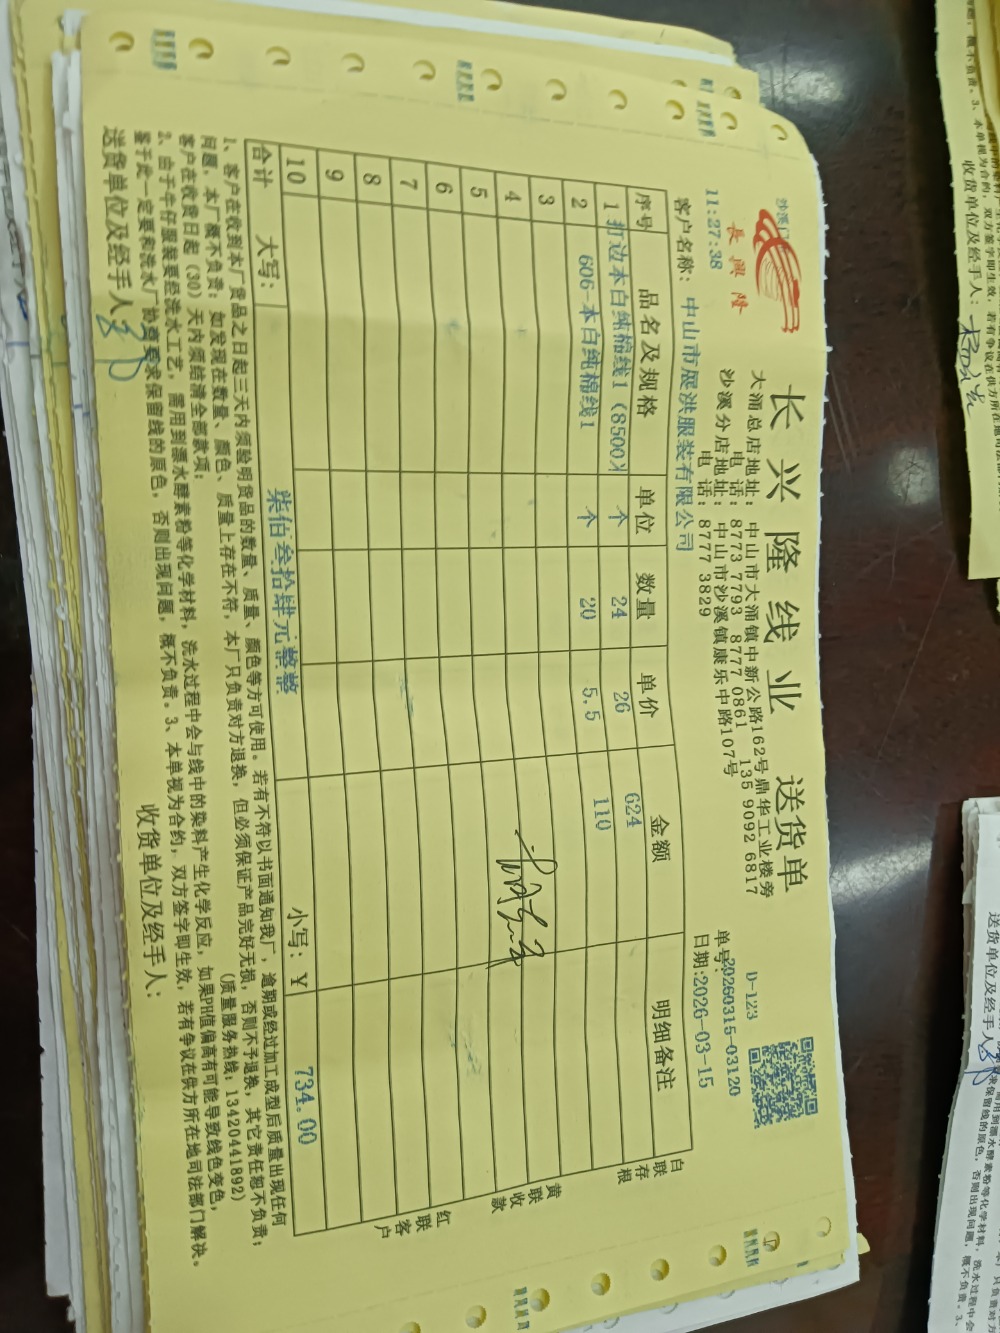 沙溪门
長興隆
长兴隆线业 送货单
大涌总店地址: 中山市大涌镇中新公路162号鼎华工业楼旁
电话: 8773 7793 8777 0861 135 9092 6817
沙溪分店地址: 中山市沙溪镇康乐中路107号
电话: 8777 3829
D-123
单号:20260315-03120
11:27:38
客户名称: 中山市展洪服装有限公司
日期:2026-03-15
序号 品名及规格 单位 数量 单价 金额 明细备注
1 打边本白纯棉线1 (8500X 个 24 26 624
2 606-本白纯棉线1 个 20 5.5 110
3
4
5
6
7
8
9
10
合计 大写: 柒佰叁拾肆元整整 小写: ¥ 734.00
白联存根
黄联收款
红联客户
1、客户在收到本厂货品之日起三天内须验明货品的数量、质量、颜色等方可使用。若有不符以书面通知我厂，逾期或经过加工成型后质量出现任何
问题，本厂概不负责；如发现在数量、颜色、质量上存在不符，本厂只负责对方退换，但必须保证产品完好无损，否则不予退换，其它责任恕不负责；
客户在收货日起（30）天内须结清全部款项； (质量服务热线: 13420441892)
2、由于牛仔服装要经洗水工艺，需用到漂水酵素粉等化学材料，洗水过程中会与线中的染料产生化学反应，如果PH值偏高有可能导致线色变色，
鉴于此一定要和洗水厂协商要求保留线的原色，否则出现问题，概不负责。3、本单视为合约，双方签字即生效，若有争议在供方所在地司法部门解决。
送货单位及经手人:
收货单位及经手人:
收货单位及经手人:
送货单位及经手人